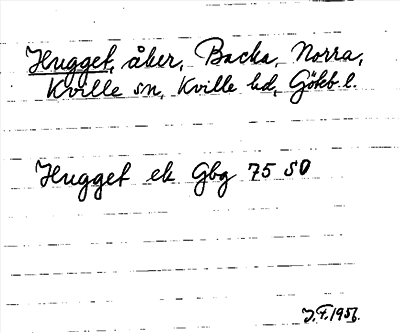 Hugget, åker, Backa, Norra,
Kville sn, Kville hd, Göteb. l.
Hugget ek Gbg 75 SO
J.F. 1956.